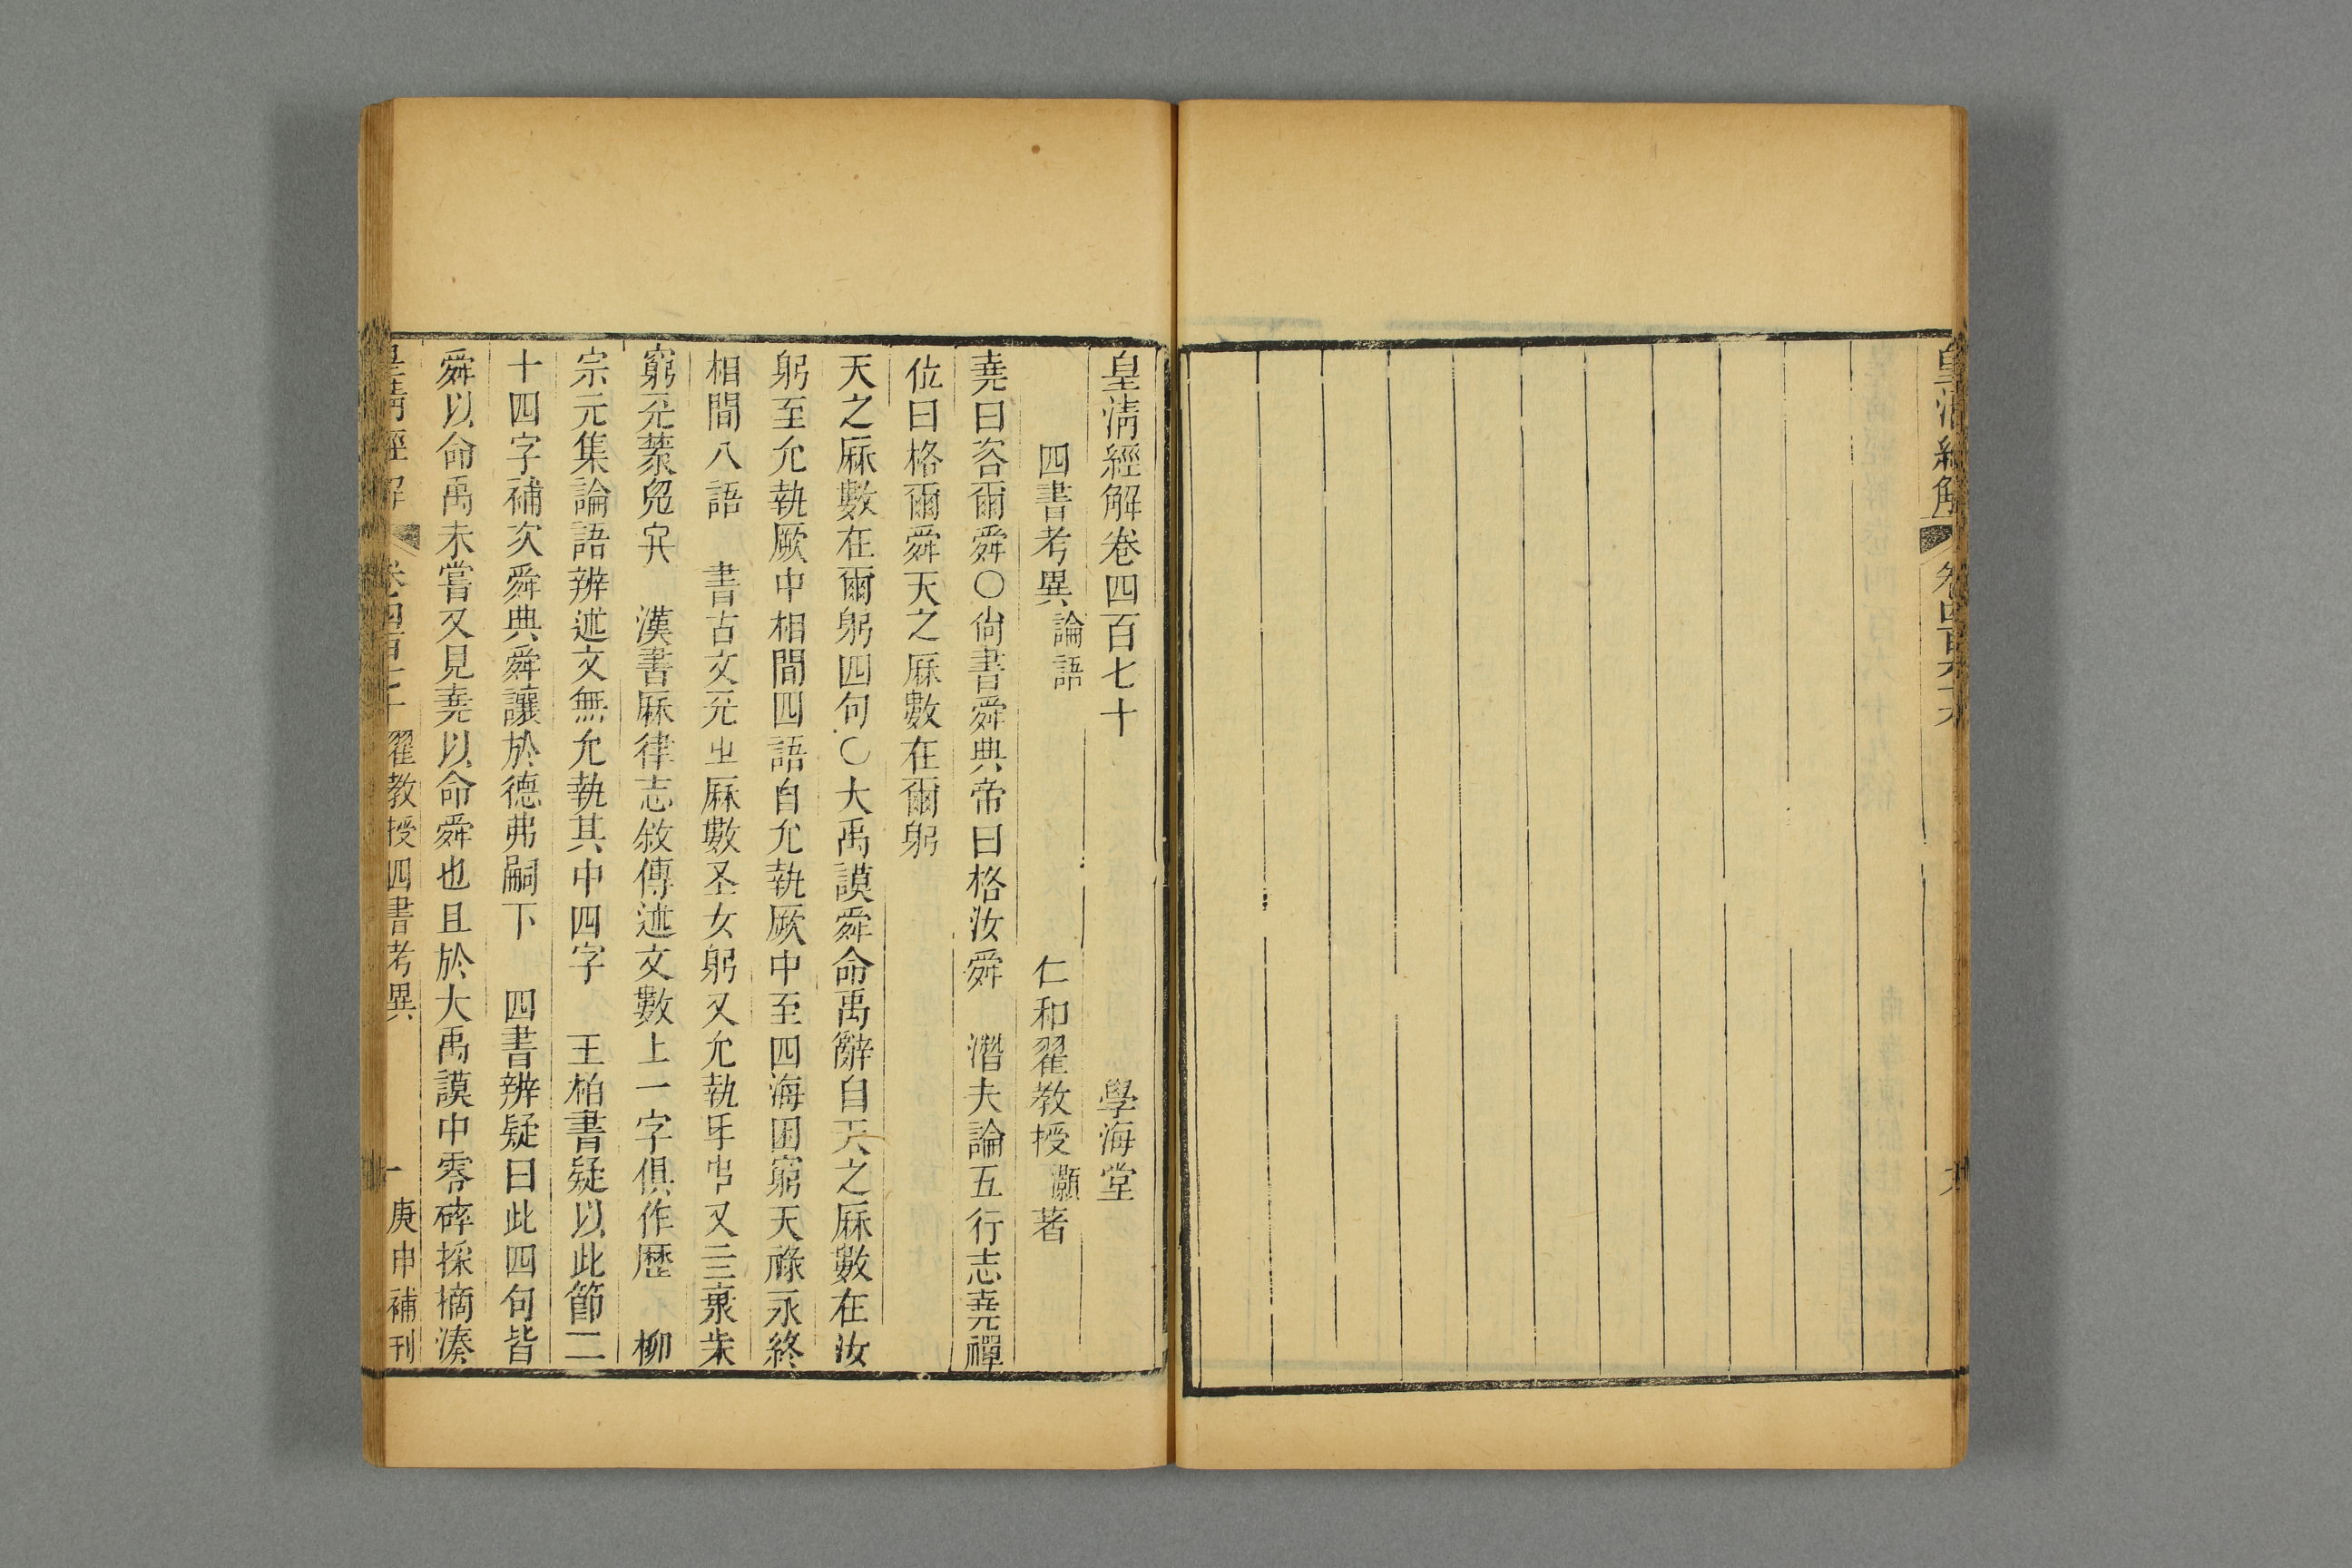 皇清經解 卷四百六十九
皇清經解卷四百七十 學海堂
四書考異論語 仁和翟教授灝著
堯曰咨爾舜〇尙書舜典帝曰格汝舜 潛夫論五行志堯禪
位曰格爾舜天之厤數在爾躬
天之厤數在爾躬四句〇大禹謨舜命禹辭自天之厤數在汝
躬至允執厥中相間四語自允執厥中至四海困窮天祿永終
相間八語 書古文
厤數圣女躬又允執
窮 漢書厤律志敘傳述文數上一字俱作歷 柳
宗元集論語辨述文無允執其中四字 王柏書疑以此節二
十四字補次舜典舜讓於德弗嗣下 四書辨疑曰此四句皆
舜以命禹未嘗又見堯以命舜也且於大禹謨中零碎採摘湊
皇清經解 卷四百七十 翟教授四書考異 一 庚申補刊